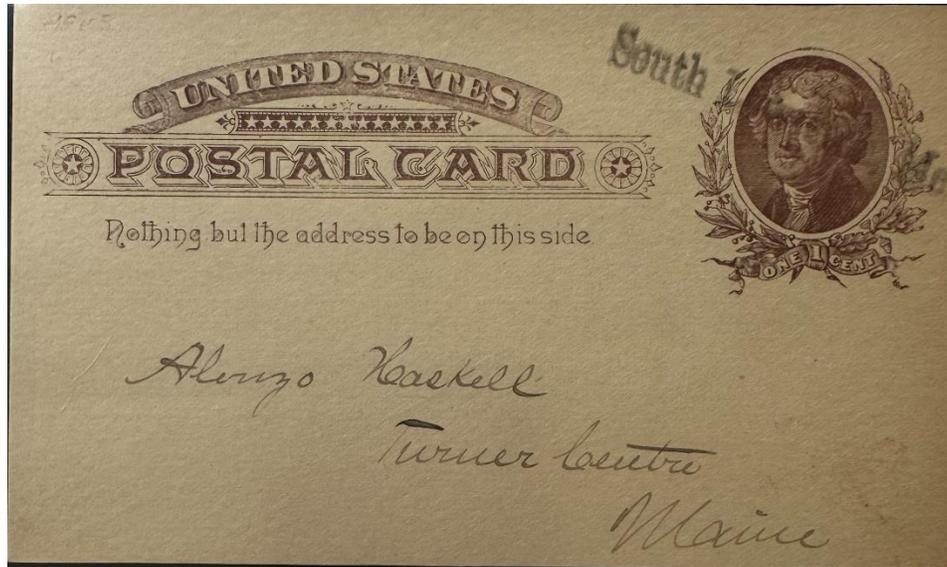 South
UNITED STATES
POSTAL CARD
Nothing but the address to be on this side
ONE 1 CENT
Alonzo Haskell
Turner Centre
Maine